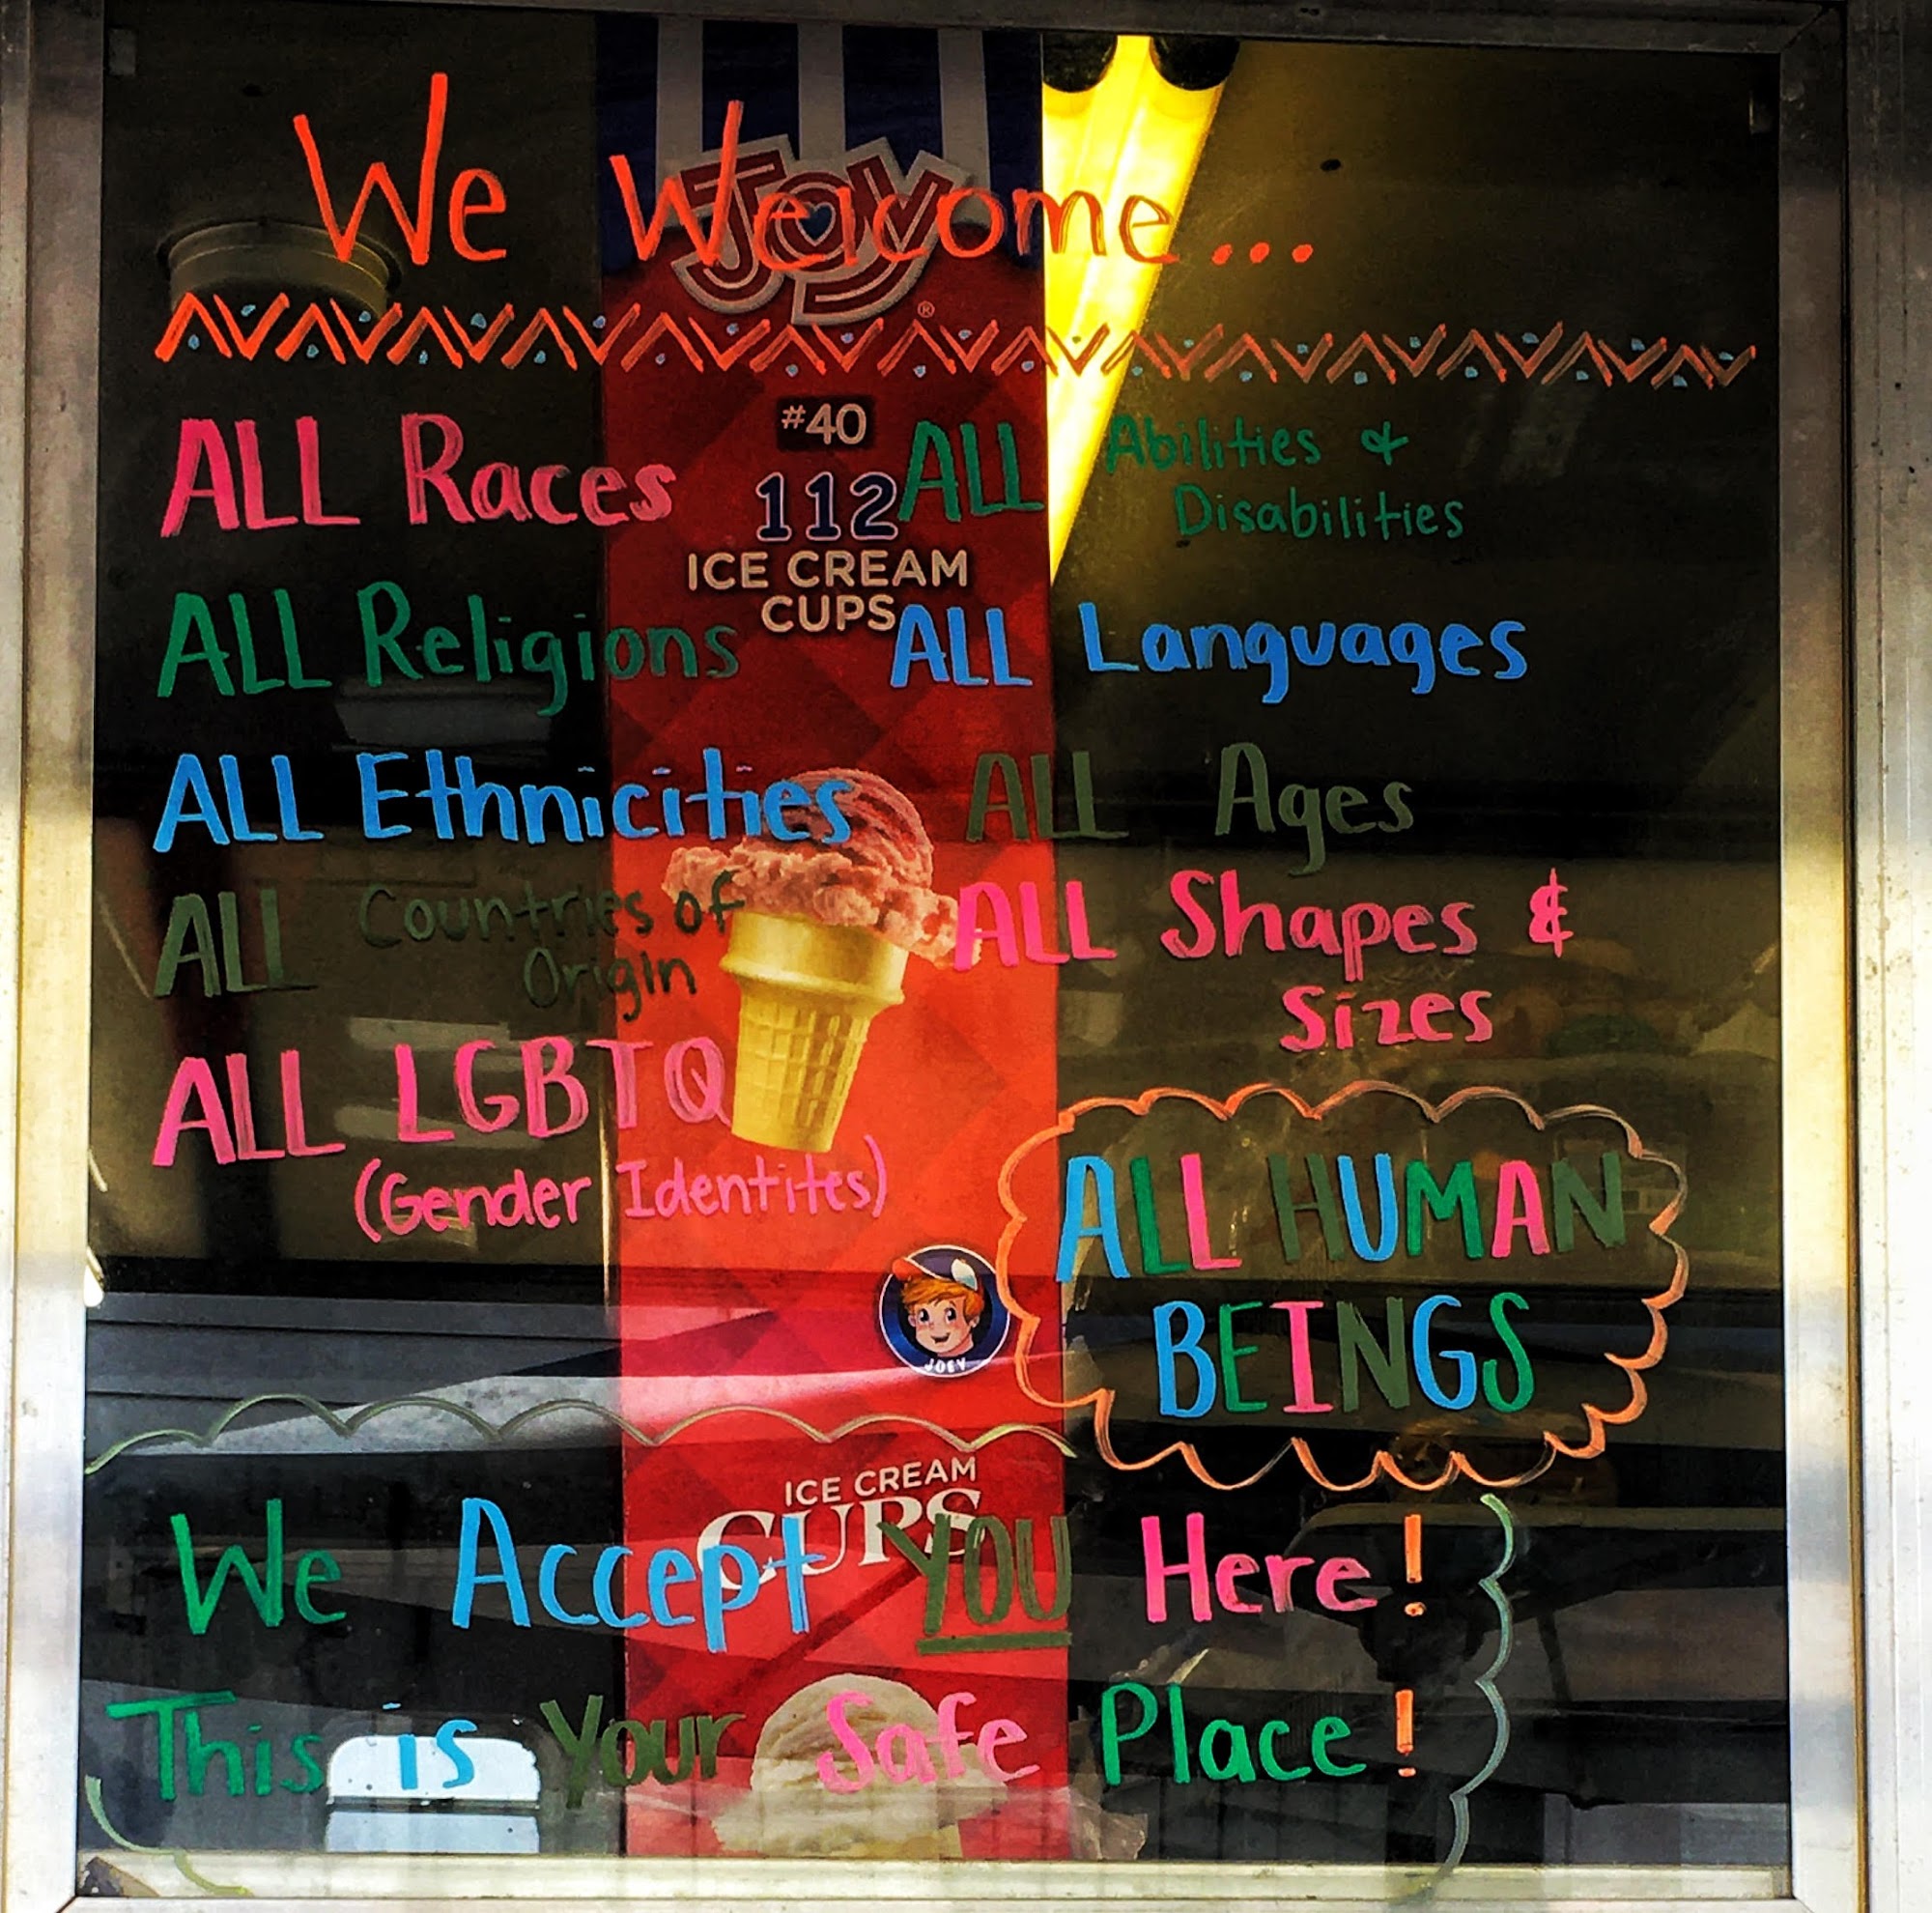 We Welcome...
ALL Races
ALL Religions
ALL Ethnicities
ALL Countries of
Origin
ALL LGBTQ
(Gender Identites)
ALL Abilities &
Disabilities
ALL Languages
ALL Ages
ALL Shapes &
Sizes
ALL HUMAN
BEINGS
We Accept YOU Here!
This is Your Safe Place!
Joy
®
#40
112
ICE CREAM
CUPS
JOEY
ICE CREAM
CUPS